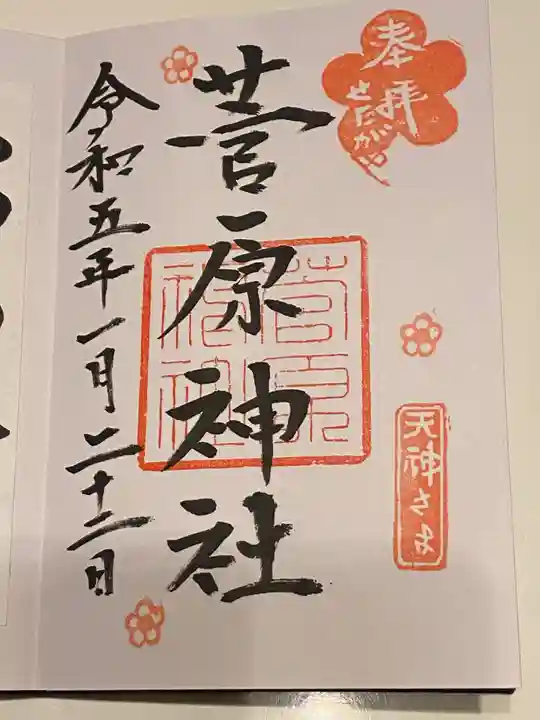 奉拝
せたがや
天神さま
菅原神社
菅原神社
令和五年一月二十二日